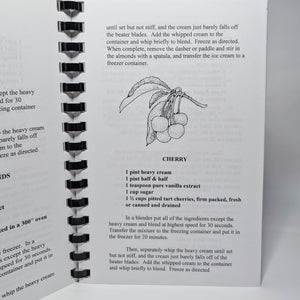 until set but not stiff, and the cream just barely falls off
the beater blades. Add the whipped cream to the
container and whip briefly to blend. Freeze as directed.
When complete, remove the dasher or paddle and stir in
the almonds with a spatula, and transfer the ice cream to a
freezer container.
CHERRY
1 pint heavy cream
1 pint half & half
1 teaspoon pure vanilla extract
1 cup sugar
1 ½ cups pitted tart cherries, firm packed, fresh
or canned and drained
In a blender put all of the ingredients except the
heavy cream and blend at highest speed for 30 seconds.
Transfer the mixture to the freezing container and put it in
the freezer for 20 minutes.
Then, separately whip the heavy cream until set
but not stiff, and the cream just barely falls off the
beater blades. Add the whipped cream to the container
and whip briefly to blend. Freeze as directed.
except the heavy
for 30
ezing container
heavy cream
barely falls off
cream to the
as directed.
NDS
in a 300° oven
freezer. In a
except the heavy
container and put it in
whip the heavy cream